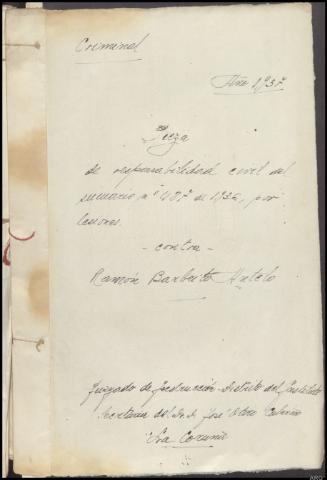 Criminal
Año 1937
Pieza
de responsabilidad civil del
sumario, nº 487 de 1936, por
lesiones.
- contra -
Ramón Barbeito
Juzgado de Instrucción Distrito del Instituto
Secretaría del Sr. D. José
La Coruña